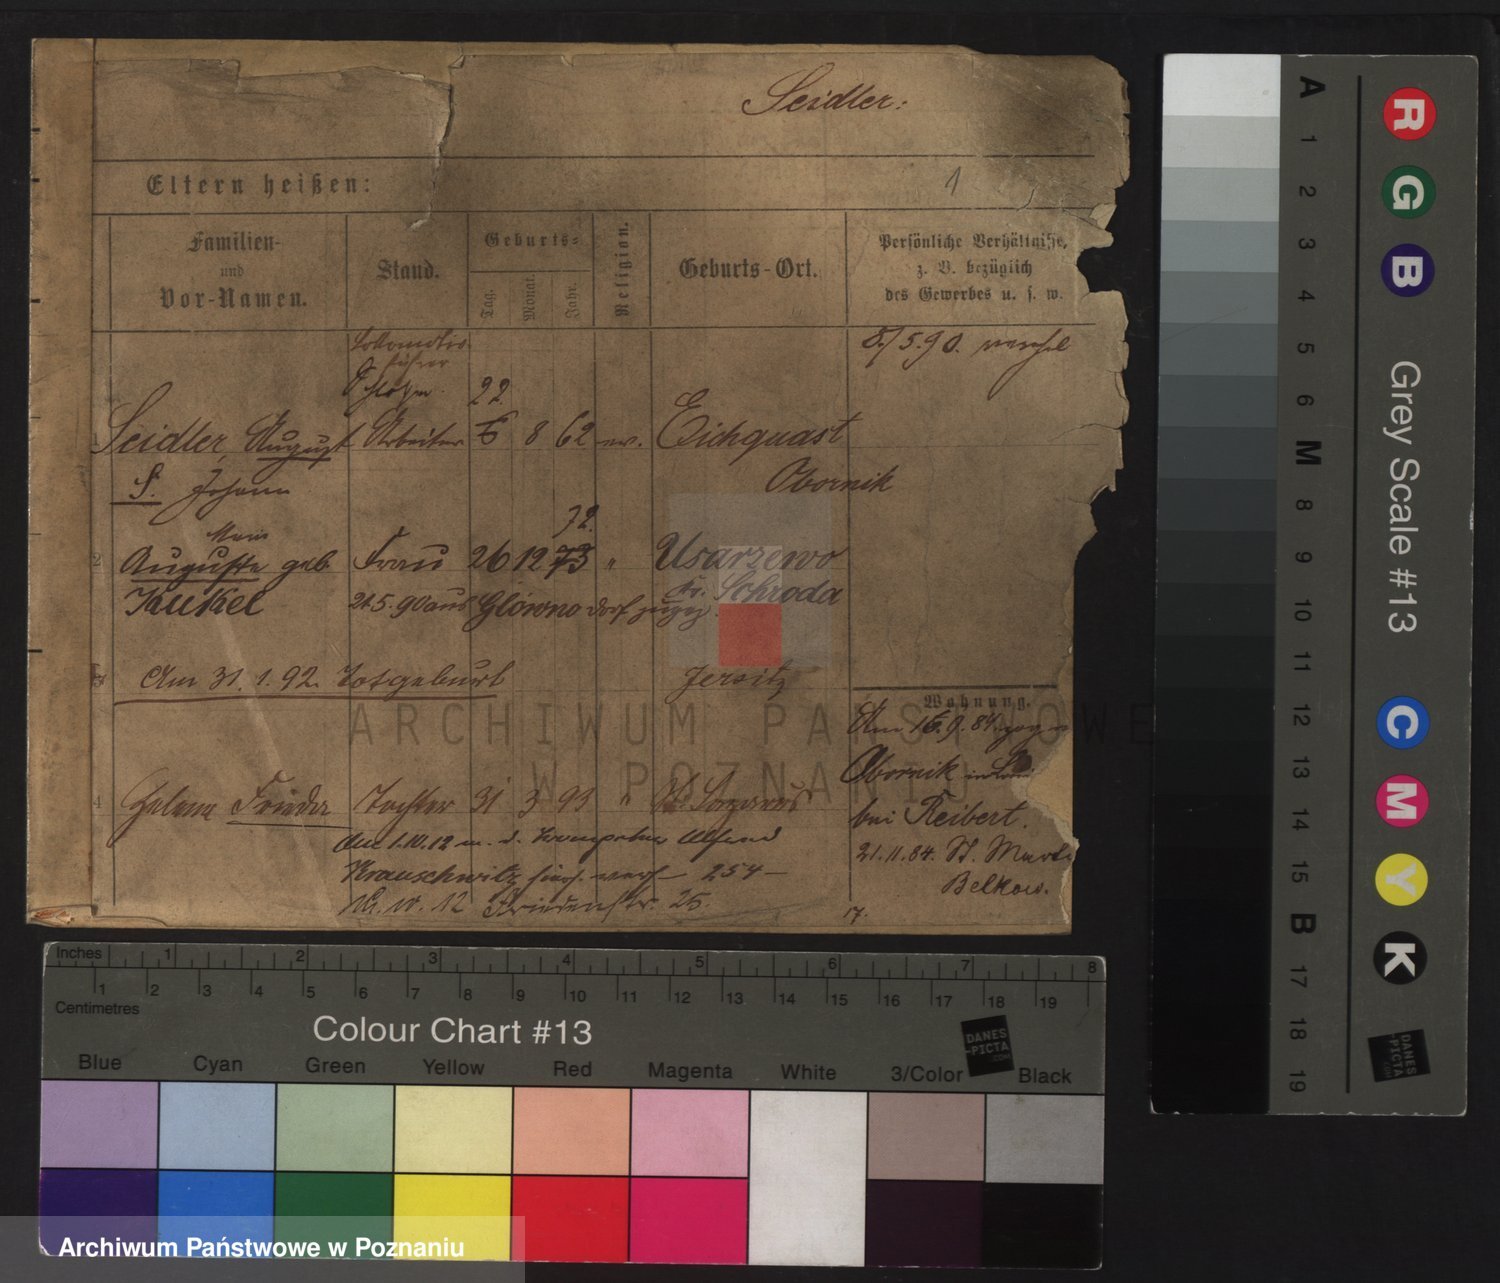 Seidler:
Eltern heißen:
1
Familien-
und
Vor-Namen.
Stand.
Geburts-
Tag.
Monat.
Jahr.
Religion.
Geburts-Ort.
Persönliche Verhältnisse,
z. B. bezüglich
des Gewerbes u. s. w.
8/5.90.
führer
22.
Seidler, August Arbeiter 8 62 ev. Eichquast
S. Johann Obornik
72.
2 Auguste geb. Frau 26 12 73 " Usarzewo
Kr. Schroda
Kukel 21.5.90 aus Glówno dorf
3 Am 31.1.92. Totgeburt Jersitz
Wohnung.
Am 9.84
Obornik
4 Helene Frieda Tochter 31 3 93 "
bei Reibert.
Am 1.10.12 m. d. Alfred
21.11.84. St. Mart
Krauschwitz 254
Belkow.
10.12 Friedenstr. 25.
17.
ARCHIWUM PAŃSTWOWE
W POZNANIU
Inches 1 2 3 4 5 6 7 8
1 2 3 4 5 6 7 8 9 10 11 12 13 14 15 16 17 18 19
Centimetres
Colour Chart #13
DANES
-PICTA
.COM
Blue Cyan Green Yellow Red Magenta White 3/Color Black
Archiwum Państwowe w Poznaniu
A 1 2 3 4 5 6 M 8 9 10 11 12 13 14 15 B 17 18 19
R G B
Grey Scale #13
C M Y K
DANES
-PICTA
.COM